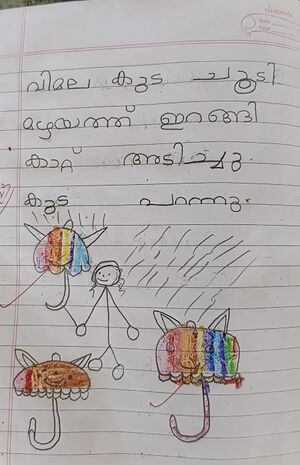 വിമല കുട ചൂടി
മഴയത്ത് ഇറങ്ങി
കാറ്റ് അടിച്ചു.
കുട പറന്നു.